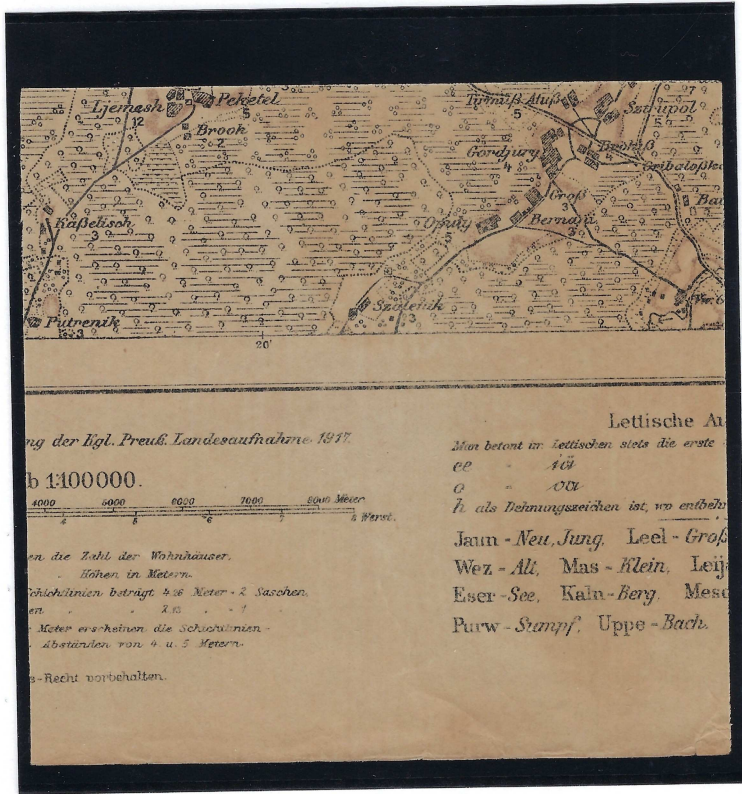 Ljemash
12
Peketel
5
Brook
2
Kaßelisch
3
Putrenik
3
Turmuß Atuß
5
Sztrupol
5
7
Gordjung
4
Brokuß
4
Gribaloßk
Groß
3
Bernani
3
Opuly
5
Szalenik
3
20'
ng der Kgl. Preuß. Landesaufnahme 1917.
b 1:100000.
4000 5000 6000 7000 8000 Meter
4 5 6 7 8 Werst.
en die Zahl der Wohnhäuser.
" Höhen in Metern.
Schichtlinien beträgt 4,26 Meter = 2 Saschen.
en " " 2,13 " = 1 "
Meter erscheinen die Schichtlinien-
Abständen von 4 u. 5 Metern.
s-Recht vorbehalten.
Lettische Au
Man betont im Lettischen stets die erste
ee " iä
o " oa
h als Dehnungszeichen ist, wo entbehr
Jaun - Neu, Jung, Leel - Groß
Wez - Alt, Mas - Klein, Leij
Eser - See, Kaln - Berg, Mesc
Purw - Sumpf, Uppe - Bach.